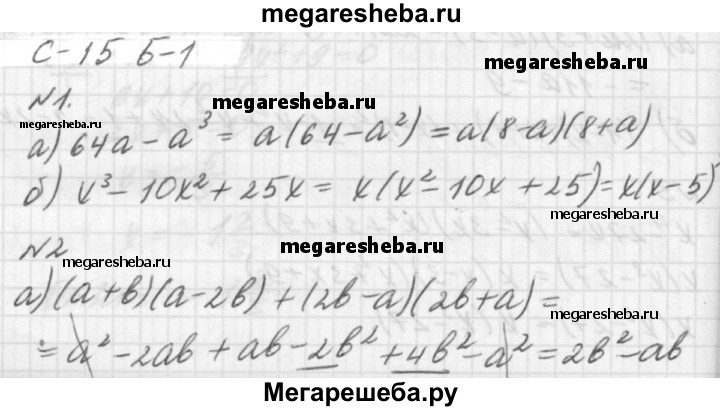 megaresheba.ru
С-15 Б-1
megaresheba.ru
№1.
megaresheba.ru
megaresheba.ru
а) 64a - a³ = a(64 - a²) = a(8-a)(8+a)
б) x³ - 10x² + 25x = x(x² - 10x + 25) = x(x-5)²
megaresheba.ru
№2
megaresheba.ru
megaresheba.ru
а) (a+b)(a-2b) + (2b-a)(2b+a) =
megaresheba.ru
= a² - 2ab + ab - 2b² + 4b² - a² = 2b² - ab
Мегарешеба.ру